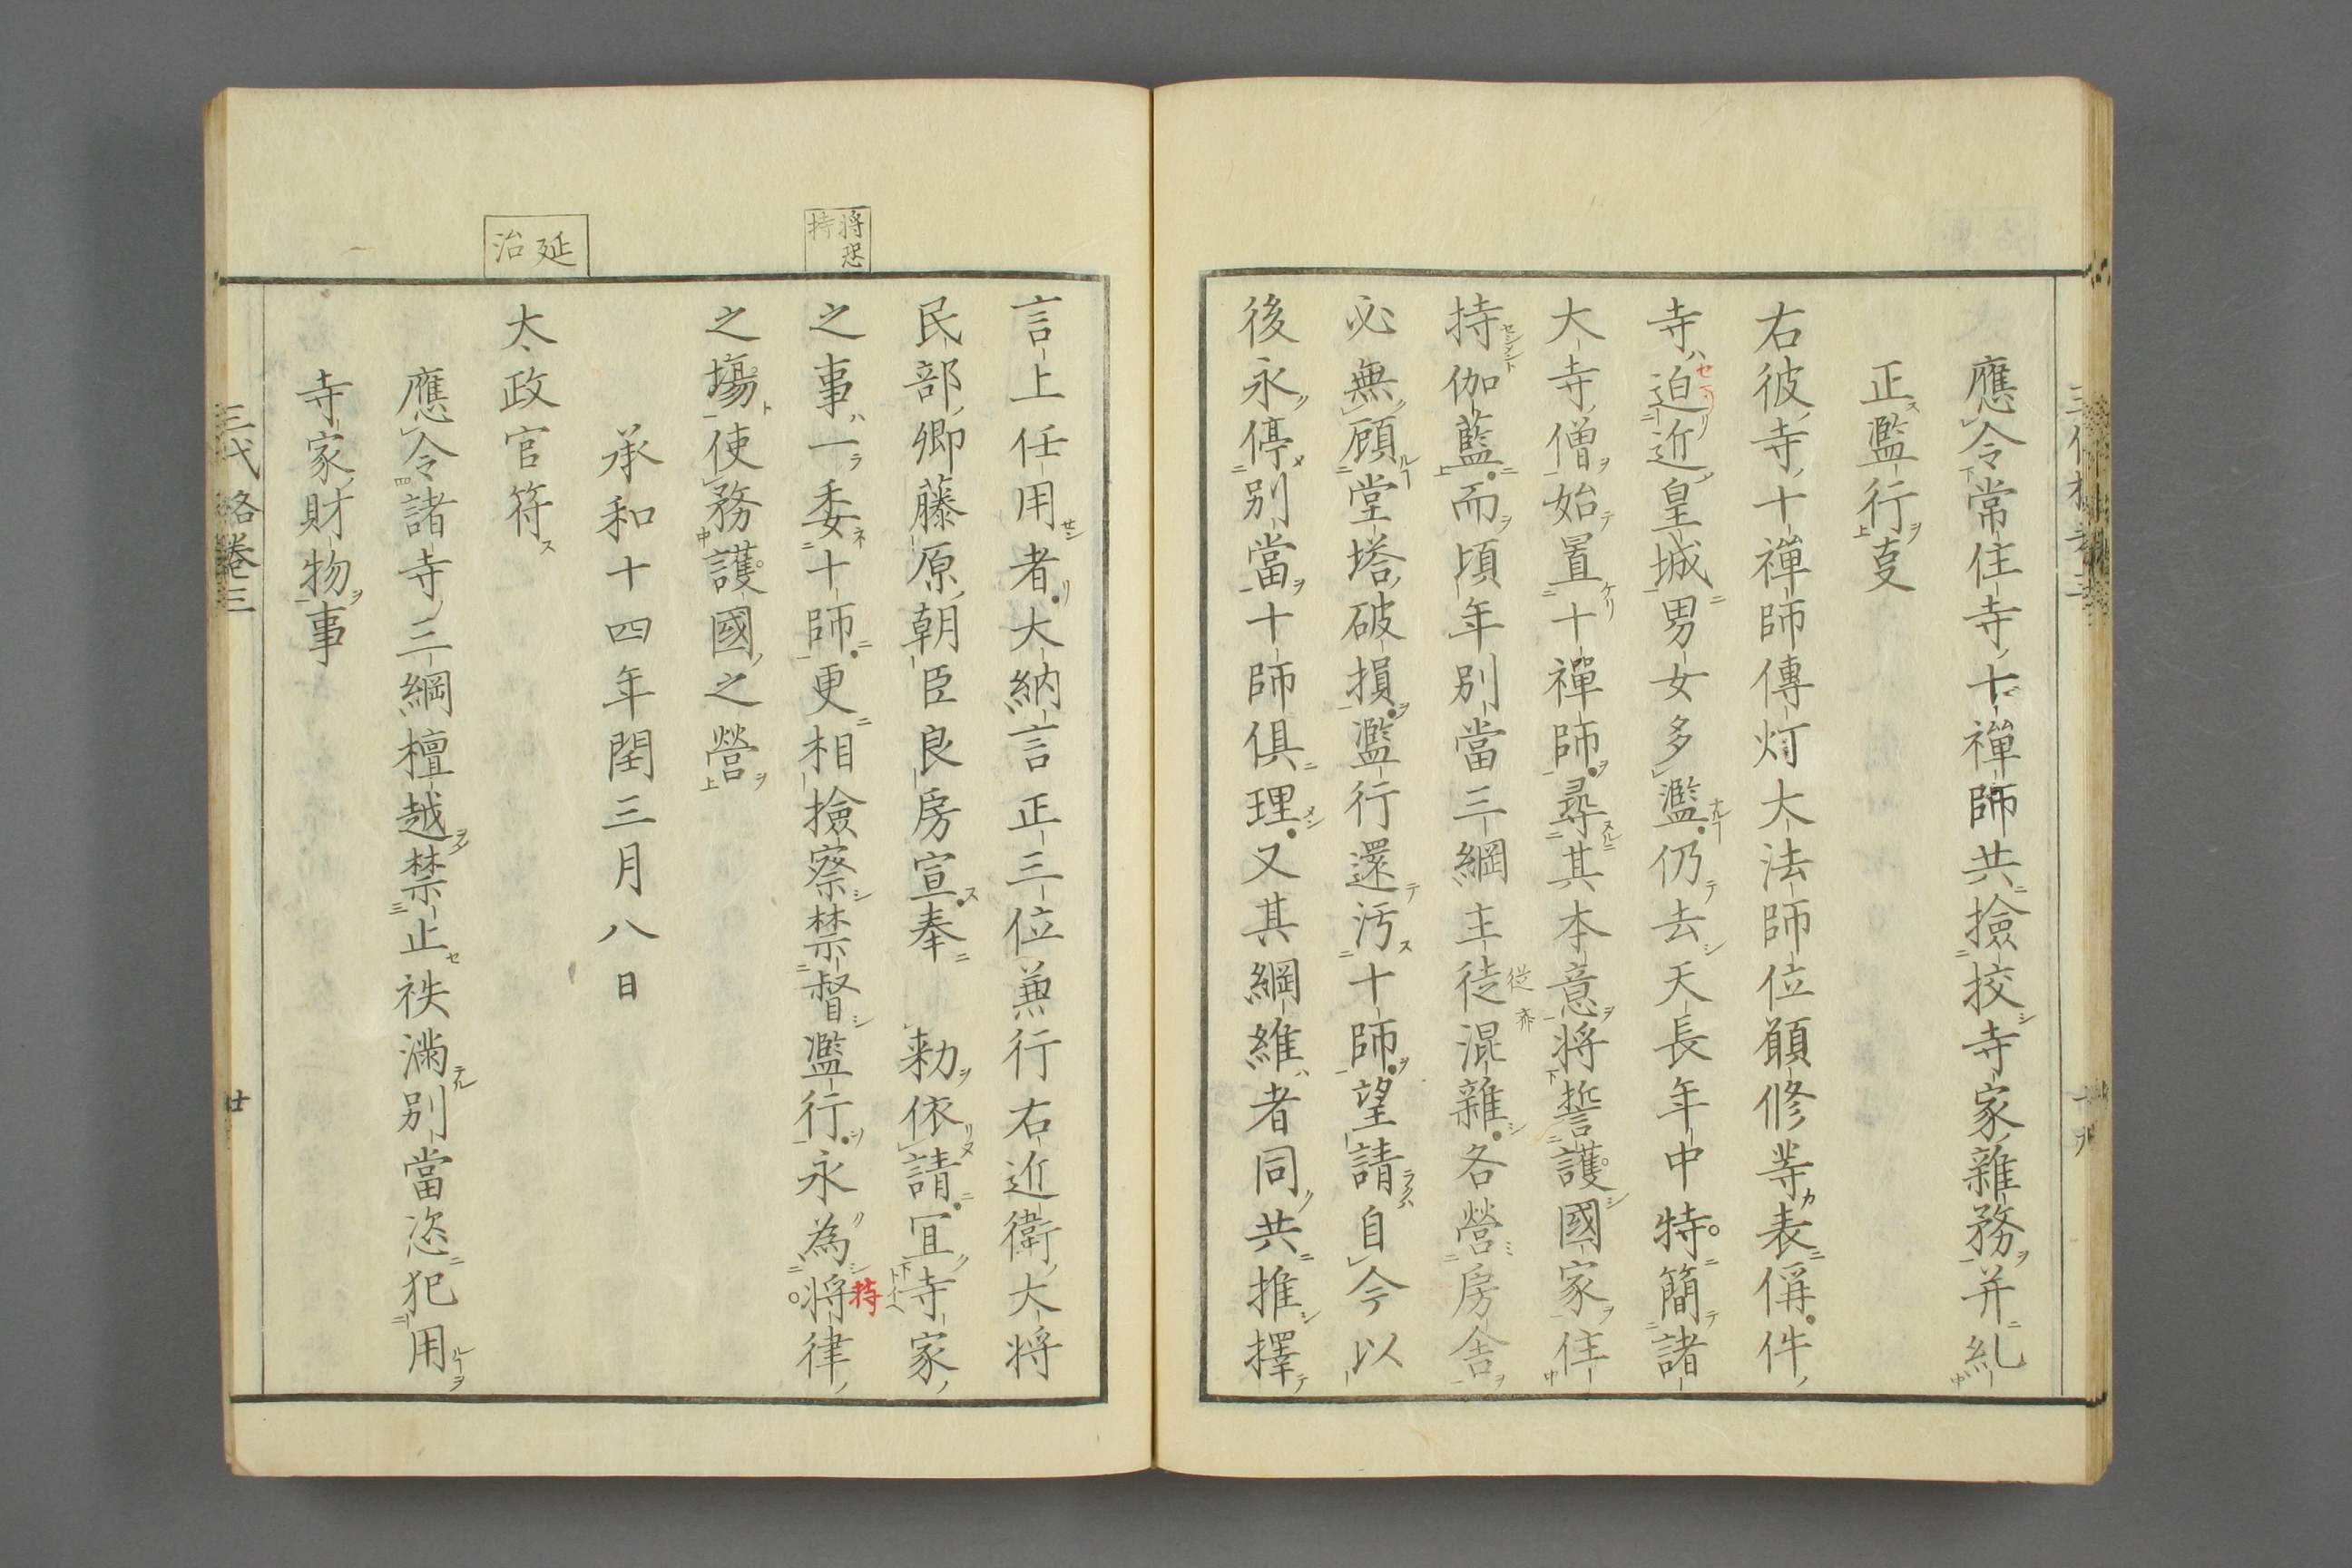 應令常住寺十禪師共撿挍寺家雜務并糺
正濫行㕝
右彼寺十禪師傳灯大法師位願修等表偁件
寺迫近皇城男女多濫仍去天長年中特簡諸
大寺僧始置十禪師尋其本意将誓護國家住
持伽藍而頃年別當三綱主徒混雜各營房舎
必無顧堂塔破損濫行還汚十師望請自今以
後永停別當十師俱理又其綱維者同共推擇
言上任用者大納言正三位兼行右近衛大将
民部卿藤原朝臣良房宣奉　勑依請冝寺家
之事一委十師更相撿察禁督濫行永為将律
之場使務護國之營
承和十四年閏三月八日
太政官符
應令諸寺三綱檀越禁止袟滿別當恣犯用
寺家財物事
将恐
持
延
治
従
持
三代格巻三
廿